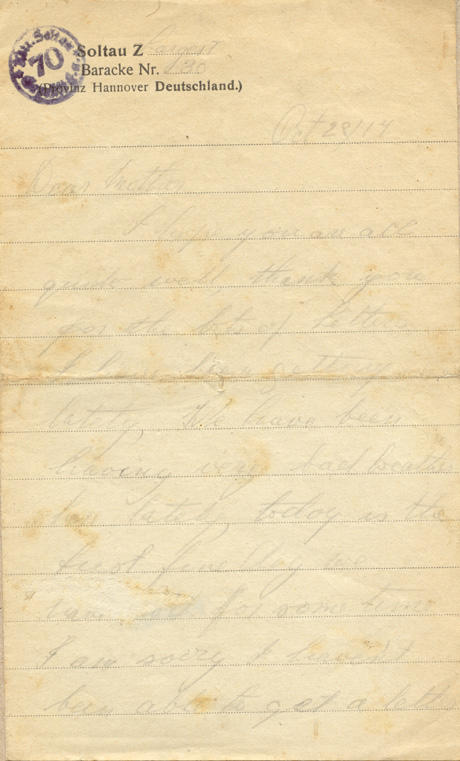 70
Soltau Z
Baracke Nr. 30
(Provinz Hannover Deutschland.)
Oct 28/17
Dear Mother
I hope you are all
quite well, thank you
for the lots of letters
I have been getting
lately, We have been
having very bad weather
here lately, today is the
first fine day we
have had for some time
I am sorry I havent
been able to get a lett